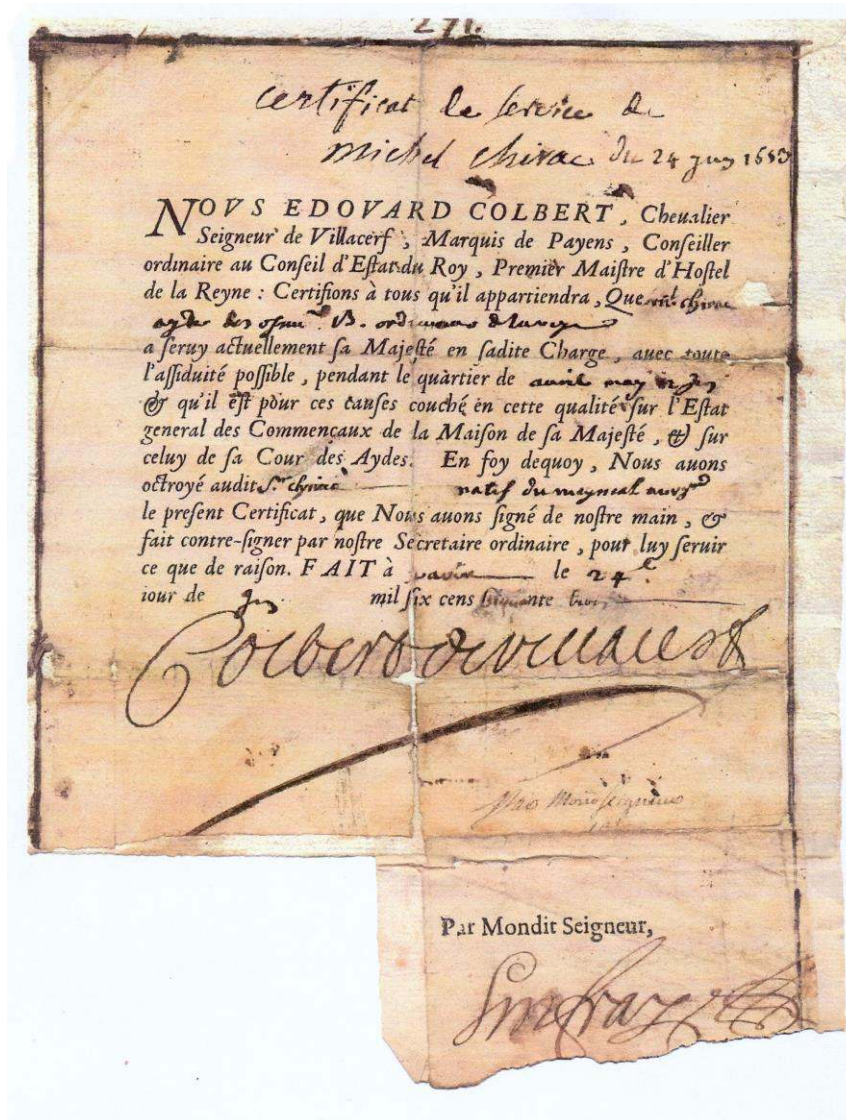 271.
certificat de service de
michel chirac du 24 juin 1683
NOVS EDOVARD COLBERT, Cheualier
Seigneur de Villacerf, Marquis de Payens, Conſeiller
ordinaire au Conſeil d'Eſtat du Roy, Premier Maiſtre d'Hoſtel
de la Reyne : Certifions à tous qu'il appartiendra, Que mᶜ chirac
ayde des
a ſeruy actuellement ſa Majeſté en ſadite Charge, avec toute
l'aſſiduité poſſible, pendant le quartier de avril may & juin
& qu'il eſt pour ces cauſes couché en cette qualité ſur l'Eſtat
general des Commençaux de la Maiſon de ſa Majeſté, & ſur
celuy de ſa Cour des Aydes. En foy dequoy, Nous auons
octroyé audit Sʳ chirac natif du
le preſent Certificat, que Nous auons ſigné de noſtre main, &
fait contre-ſigner par noſtre Secretaire ordinaire, pour luy ſeruir
ce que de raiſon. FAIT à le 24ᵉ
iour de juin mil ſix cens trois
Colbert de villacerf
Par Mondit Seigneur,